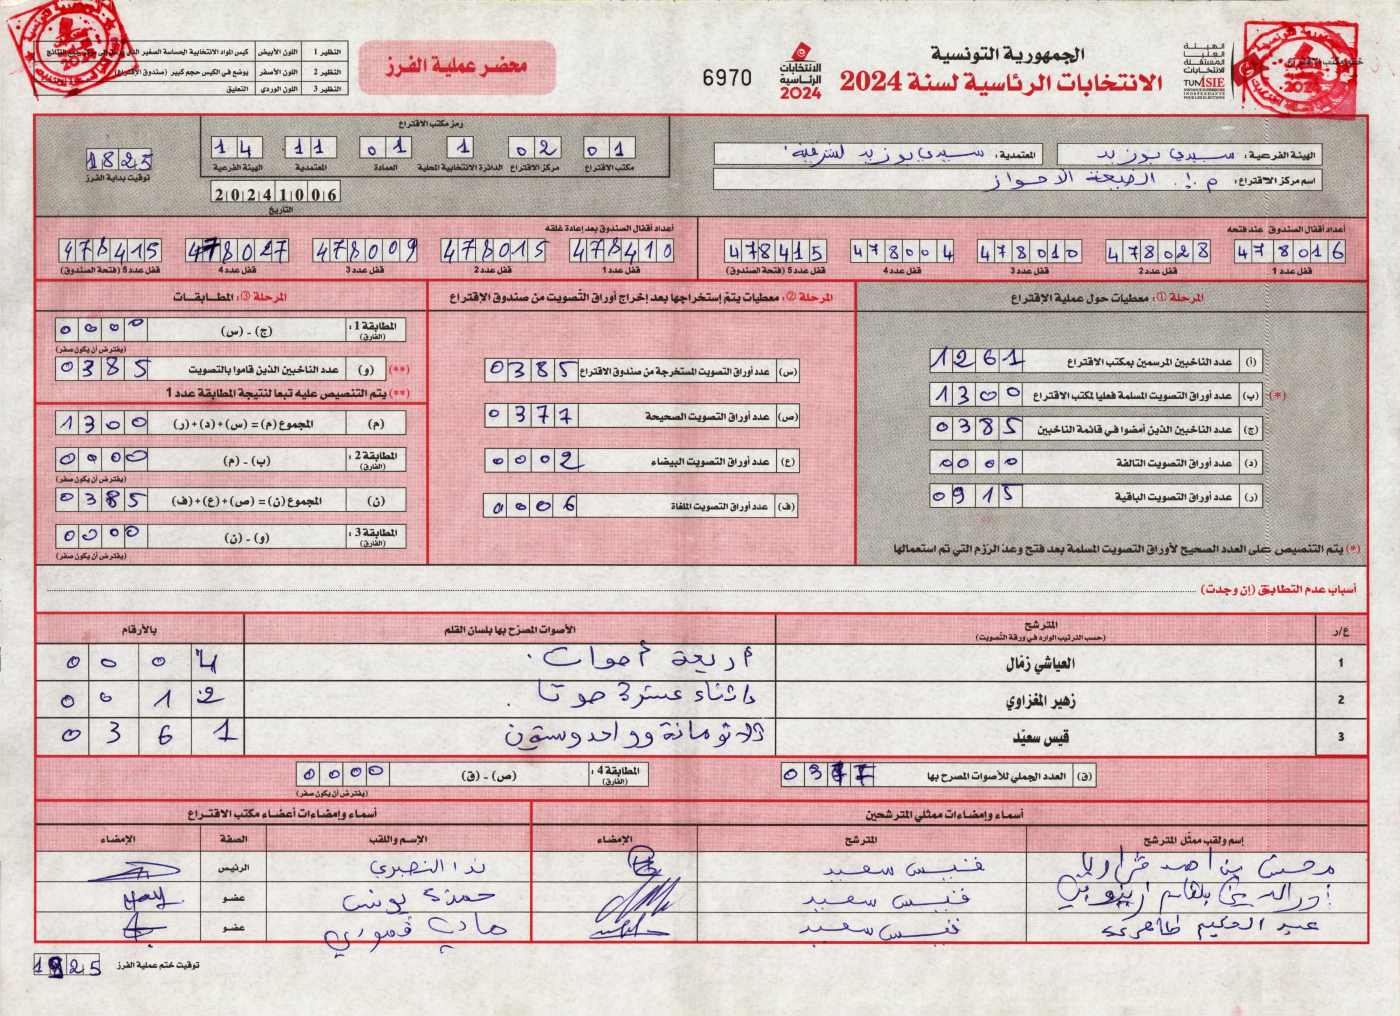 الجمهورية التونسية
الانتخابات الرئاسية لسنة 2024
الهيئة العليا المستقلة للانتخابات
TUNISIE
الانتخابات الرئاسية 2024
6970
محضر عملية الفرز
النظير 1 اللون الأبيض كيس المواد الانتخابية الحساسة الصغير
النظير 2 اللون الأصفر يوضع في الكيس حجم كبير (صندوق الإقتراع)
النظير 3 اللون الوردي التعليق
الهيئة الفرعية : سيدي بوزيد المعتمدية : سيدي بوزيد الشرقية
اسم مركز الاقتراع :
رمز مكتب الاقتراع
01 02 1 01 11 14
مكتب الاقتراع مركز الاقتراع الدائرة الانتخابية المحلية العمادة المعتمدية الهيئة الفرعية
20241006
التاريخ
1825
توقيت بداية الفرز
أعداد أقفال الصندوق عند فتحه
478016 478028 478010 478004 478415
قفل عدد 1 قفل عدد 2 قفل عدد 3 قفل عدد 4 قفل عدد 5 (فتحة الصندوق)
أعداد أقفال الصندوق بعد إعادة غلقه
478410 478015 478009 478027 478415
قفل عدد 1 قفل عدد 2 قفل عدد 3 قفل عدد 4 قفل عدد 5 (فتحة الصندوق)
المرحلة ①: معطيات حول عملية الإقتراع
(أ) عدد الناخبين المرسمين بمكتب الاقتراع 1261
(*) (ب) عدد أوراق التصويت المسلمة فعليا لمكتب الاقتراع 1300
(ج) عدد الناخبين الذين أمضوا في قائمة الناخبين 0385
(د) عدد أوراق التصويت التالفة 0000
(ر) عدد أوراق التصويت الباقية 0915
(*) يتم التنصيص على العدد الصحيح لأوراق التصويت المسلمة بعد فتح وعد الرزم التي تم استعمالها
المرحلة ②: معطيات يتم إستخراجها بعد إخراج أوراق التصويت من صندوق الإقتراع
(س) عدد أوراق التصويت المستخرجة من صندوق الاقتراع 0385
(ص) عدد أوراق التصويت الصحيحة 0377
(ع) عدد أوراق التصويت البيضاء 0002
(ف) عدد أوراق التصويت الملغاة 0006
المرحلة ③: المطابقات
المطابقة 1 : (الفارق) (ج) - (س) 0000
(يفترض أن يكون صفر)
(**) (و) عدد الناخبين الذين قاموا بالتصويت 0385
(**) يتم التنصيص عليه تبعا لنتيجة المطابقة عدد 1
(م) المجموع (م) = (س)+(د)+(ر) 1300
المطابقة 2 : (الفارق) (ب) - (م) 0000
(يفترض أن يكون صفر)
(ن) المجموع (ن) = (ص)+(ع)+(ف) 0385
المطابقة 3 : (الفارق) (و) - (ن) 0000
(يفترض أن يكون صفر)
أسباب عدم التطابق (إن وجدت)
ع/ر المترشح (حسب الترتيب الوارد في ورقة التصويت) الأصوات المصرّح بها بلسان القلم بالأرقام
1 العياشي زمّال أربعة أصوات 0004
2 زهير المغزاوي إثناء عشر صوتا 0012
3 قيس سعيّد ثلاثمائة وواحد وستون 0361
(ق) العدد الجملي للأصوات المصرح بها 0377
المطابقة 4 : (الفارق) (ص) - (ق) 0000
(يفترض أن يكون صفر)
أسماء وإمضاءات ممثلي المترشحين
إسم ولقب ممثل المترشح المترشح الإمضاء
محسن بن احمد قيس سعيد
قيس سعيد
عبد الحكيم طاهري قيس سعيد
أسماء وإمضاءات أعضاء مكتب الاقتراع
الإسم واللقب الصفة الإمضاء
ندا النصيري الرئيس
حمزة يونسي عضو
هادي قموري عضو
توقيت ختم عملية الفرز 1925